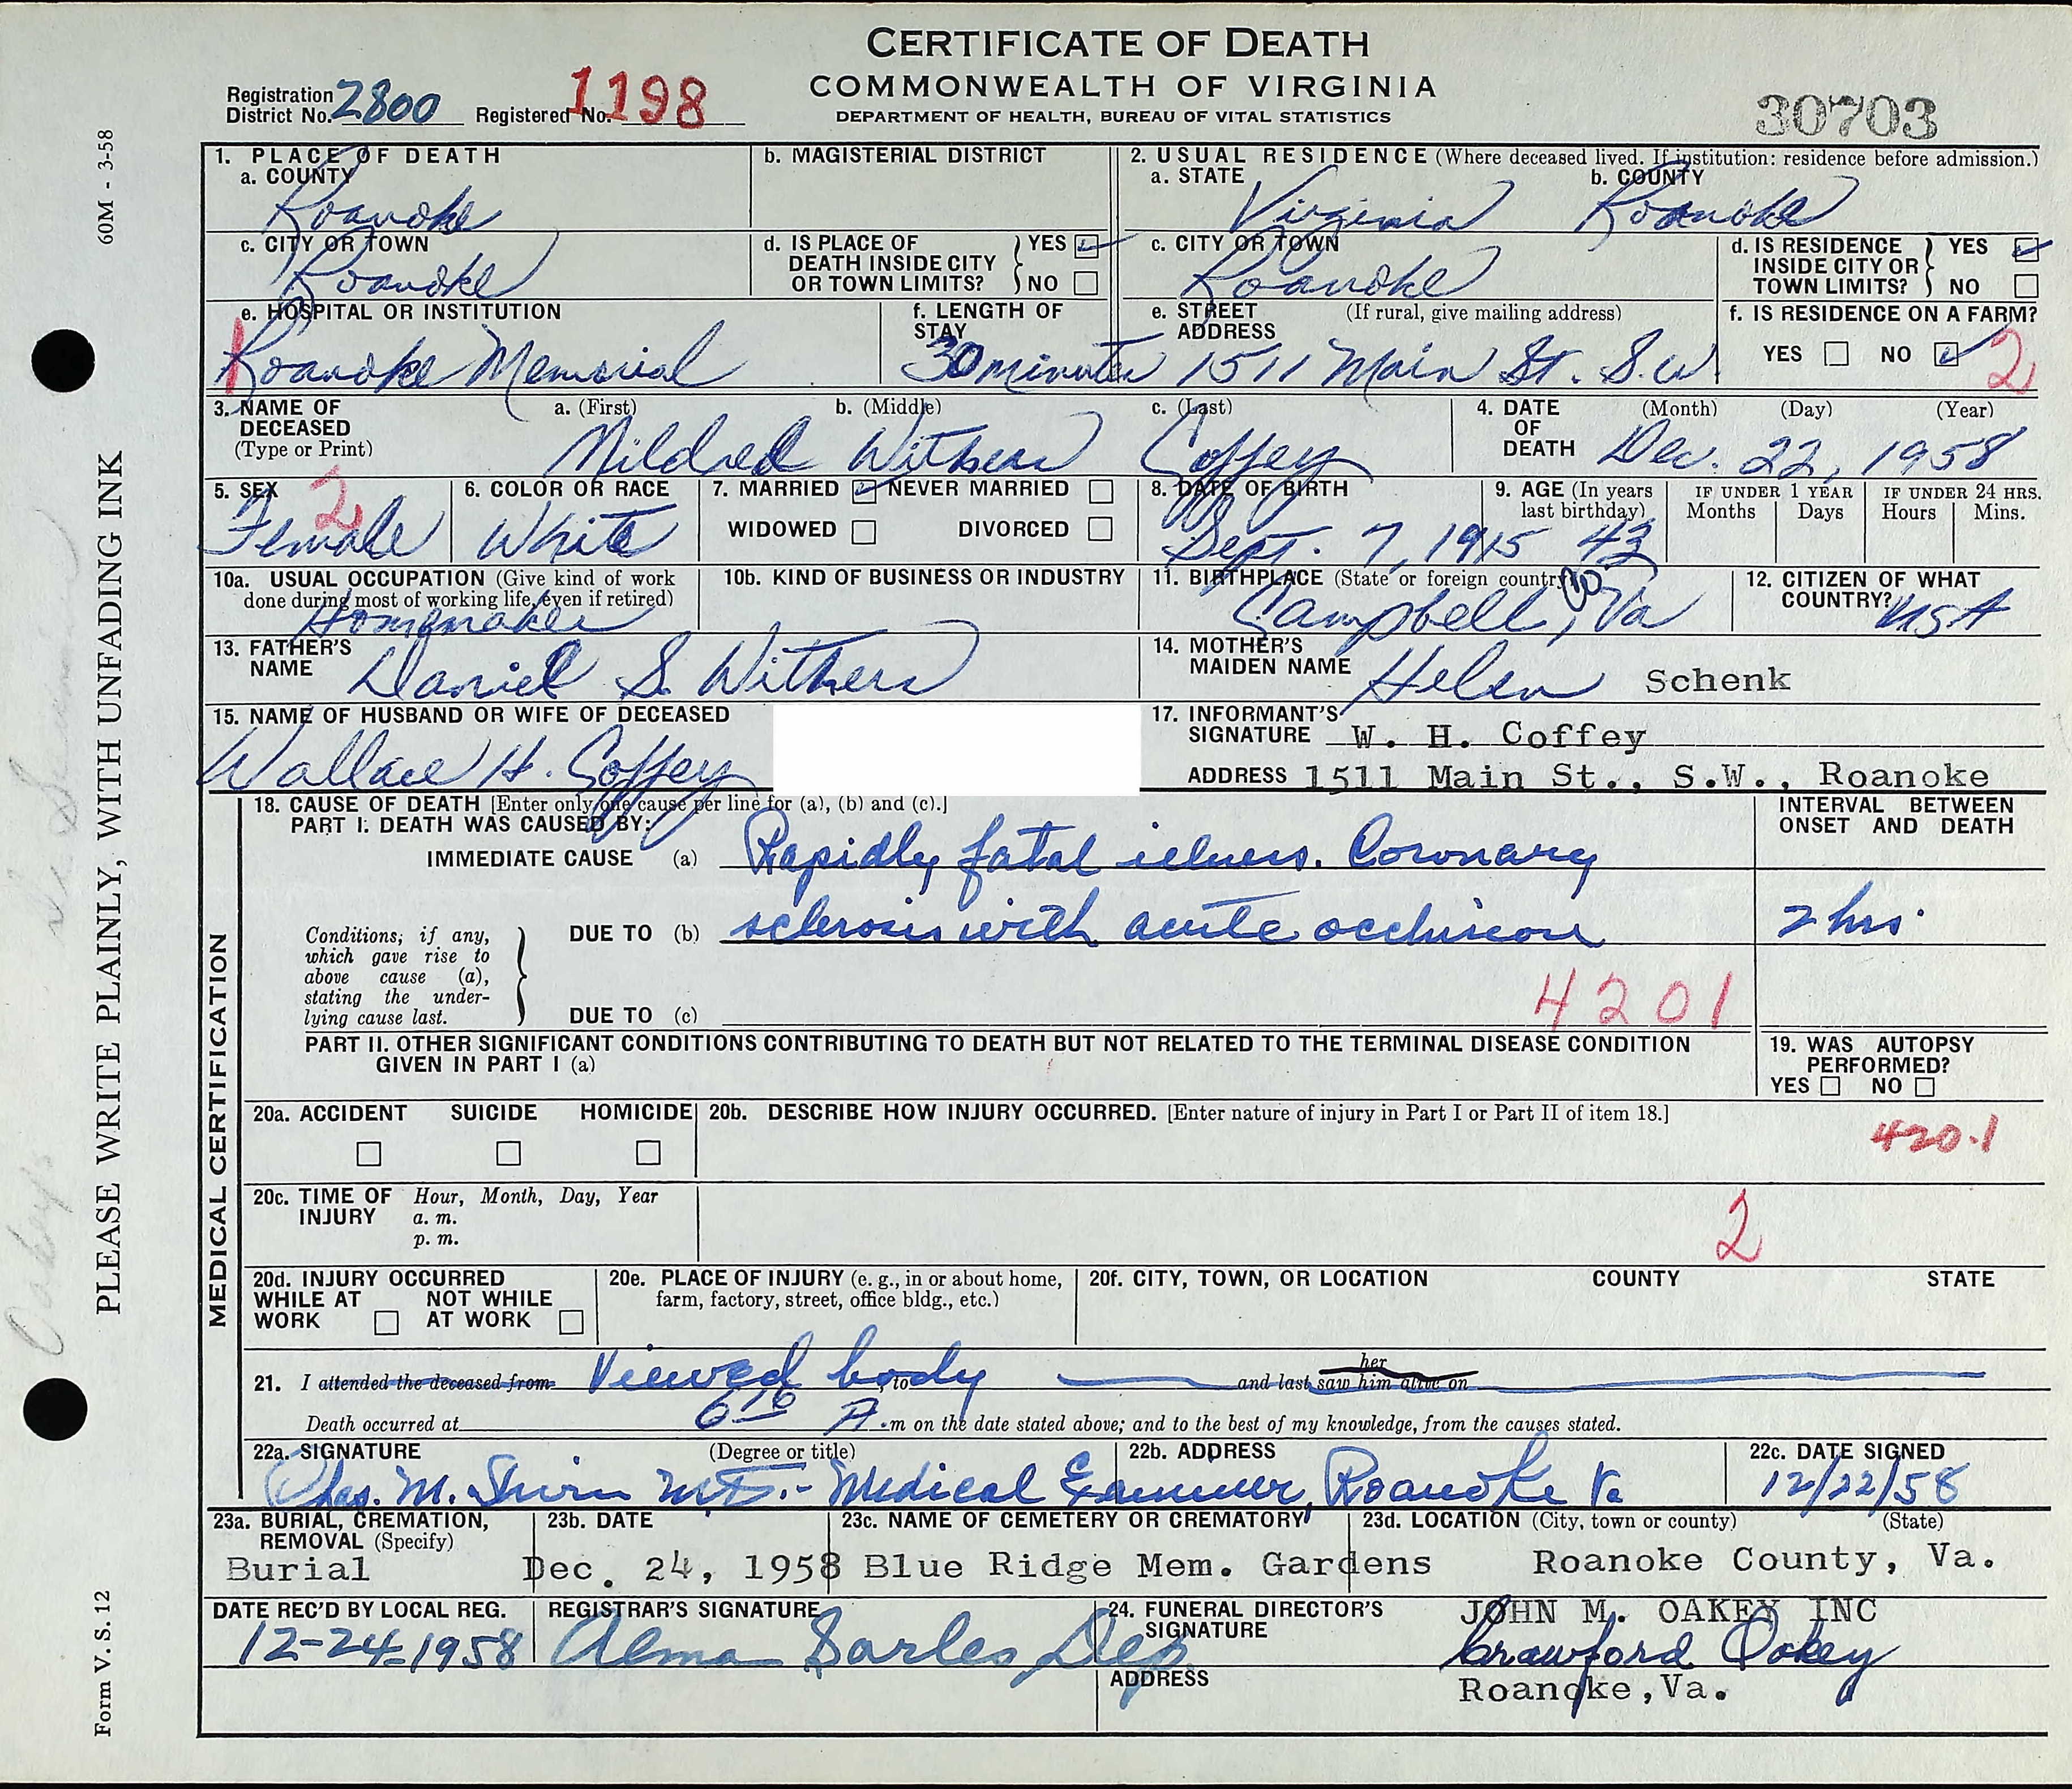 CERTIFICATE OF DEATH
COMMONWEALTH OF VIRGINIA
DEPARTMENT OF HEALTH, BUREAU OF VITAL STATISTICS
Registration District No. 2800 Registered No. 1198
30703
1. PLACE OF DEATH
a. COUNTY Roanoke
b. MAGISTERIAL DISTRICT
2. USUAL RESIDENCE (Where deceased lived. If institution: residence before admission.)
a. STATE Virginia b. COUNTY Roanoke
c. CITY OR TOWN Roanoke
d. IS PLACE OF DEATH INSIDE CITY OR TOWN LIMITS? YES NO
c. CITY OR TOWN Roanoke
d. IS RESIDENCE INSIDE CITY OR TOWN LIMITS? YES NO
e. HOSPITAL OR INSTITUTION Roanoke Memorial
f. LENGTH OF STAY 30 minutes
e. STREET ADDRESS (If rural, give mailing address) 1511 Main St. S.W.
f. IS RESIDENCE ON A FARM? YES NO 2
3. NAME OF DECEASED (Type or Print)
a. (First) b. (Middle) c. (Last)
Mildred Withers Coffey
4. DATE OF DEATH (Month) (Day) (Year)
Dec. 22, 1958
5. SEX 2 Female
6. COLOR OR RACE White
7. MARRIED NEVER MARRIED
WIDOWED DIVORCED
8. DATE OF BIRTH Sept. 7, 1915
9. AGE (In years last birthday) 43
IF UNDER 1 YEAR Months Days
IF UNDER 24 HRS. Hours Mins.
10a. USUAL OCCUPATION (Give kind of work done during most of working life, even if retired) Homemaker
10b. KIND OF BUSINESS OR INDUSTRY
11. BIRTHPLACE (State or foreign country) Campbell Co, Va
12. CITIZEN OF WHAT COUNTRY? USA
13. FATHER'S NAME Daniel S. Withers
14. MOTHER'S MAIDEN NAME Helen Schenk
15. NAME OF HUSBAND OR WIFE OF DECEASED
Wallace H. Coffey
17. INFORMANT'S SIGNATURE W. H. Coffey
ADDRESS 1511 Main St., S.W., Roanoke
MEDICAL CERTIFICATION
18. CAUSE OF DEATH [Enter only one cause per line for (a), (b) and (c).]
INTERVAL BETWEEN ONSET AND DEATH
PART I. DEATH WAS CAUSED BY:
IMMEDIATE CAUSE (a) Rapidly fatal illness. Coronary
Conditions, if any, which gave rise to above cause (a), stating the underlying cause last.
DUE TO (b) sclerosis with acute occlusion 2 hrs.
DUE TO (c) 4201
PART II. OTHER SIGNIFICANT CONDITIONS CONTRIBUTING TO DEATH BUT NOT RELATED TO THE TERMINAL DISEASE CONDITION GIVEN IN PART I (a)
19. WAS AUTOPSY PERFORMED? YES NO
20a. ACCIDENT SUICIDE HOMICIDE
20b. DESCRIBE HOW INJURY OCCURRED. [Enter nature of injury in Part I or Part II of item 18.]
420.1
20c. TIME OF INJURY Hour, Month, Day, Year
a. m.
p. m.
2
20d. INJURY OCCURRED
WHILE AT WORK NOT WHILE AT WORK
20e. PLACE OF INJURY (e. g., in or about home, farm, factory, street, office bldg., etc.)
20f. CITY, TOWN, OR LOCATION COUNTY STATE
21. I attended the deceased from Viewed body, to and last saw him alive on her
Death occurred at 6 10 A.m on the date stated above; and to the best of my knowledge, from the causes stated.
22a. SIGNATURE (Degree or title)
Chas. M. Irvin M.D. - Medical Examiner,
22b. ADDRESS Roanoke Va
22c. DATE SIGNED 12/22/58
23a. BURIAL, CREMATION, REMOVAL (Specify) Burial
23b. DATE Dec. 24, 1958
23c. NAME OF CEMETERY OR CREMATORY Blue Ridge Mem. Gardens
23d. LOCATION (City, town or county) (State) Roanoke County, Va.
DATE REC'D BY LOCAL REG. 12-24-1958
REGISTRAR'S SIGNATURE Alma Sarles Dep
24. FUNERAL DIRECTOR'S SIGNATURE
JOHN M. OAKEY INC
Crawford Oakey
ADDRESS Roanoke, Va.
60M - 3-58
PLEASE WRITE PLAINLY, WITH UNFADING INK
Form V. S. 12
Oakey's